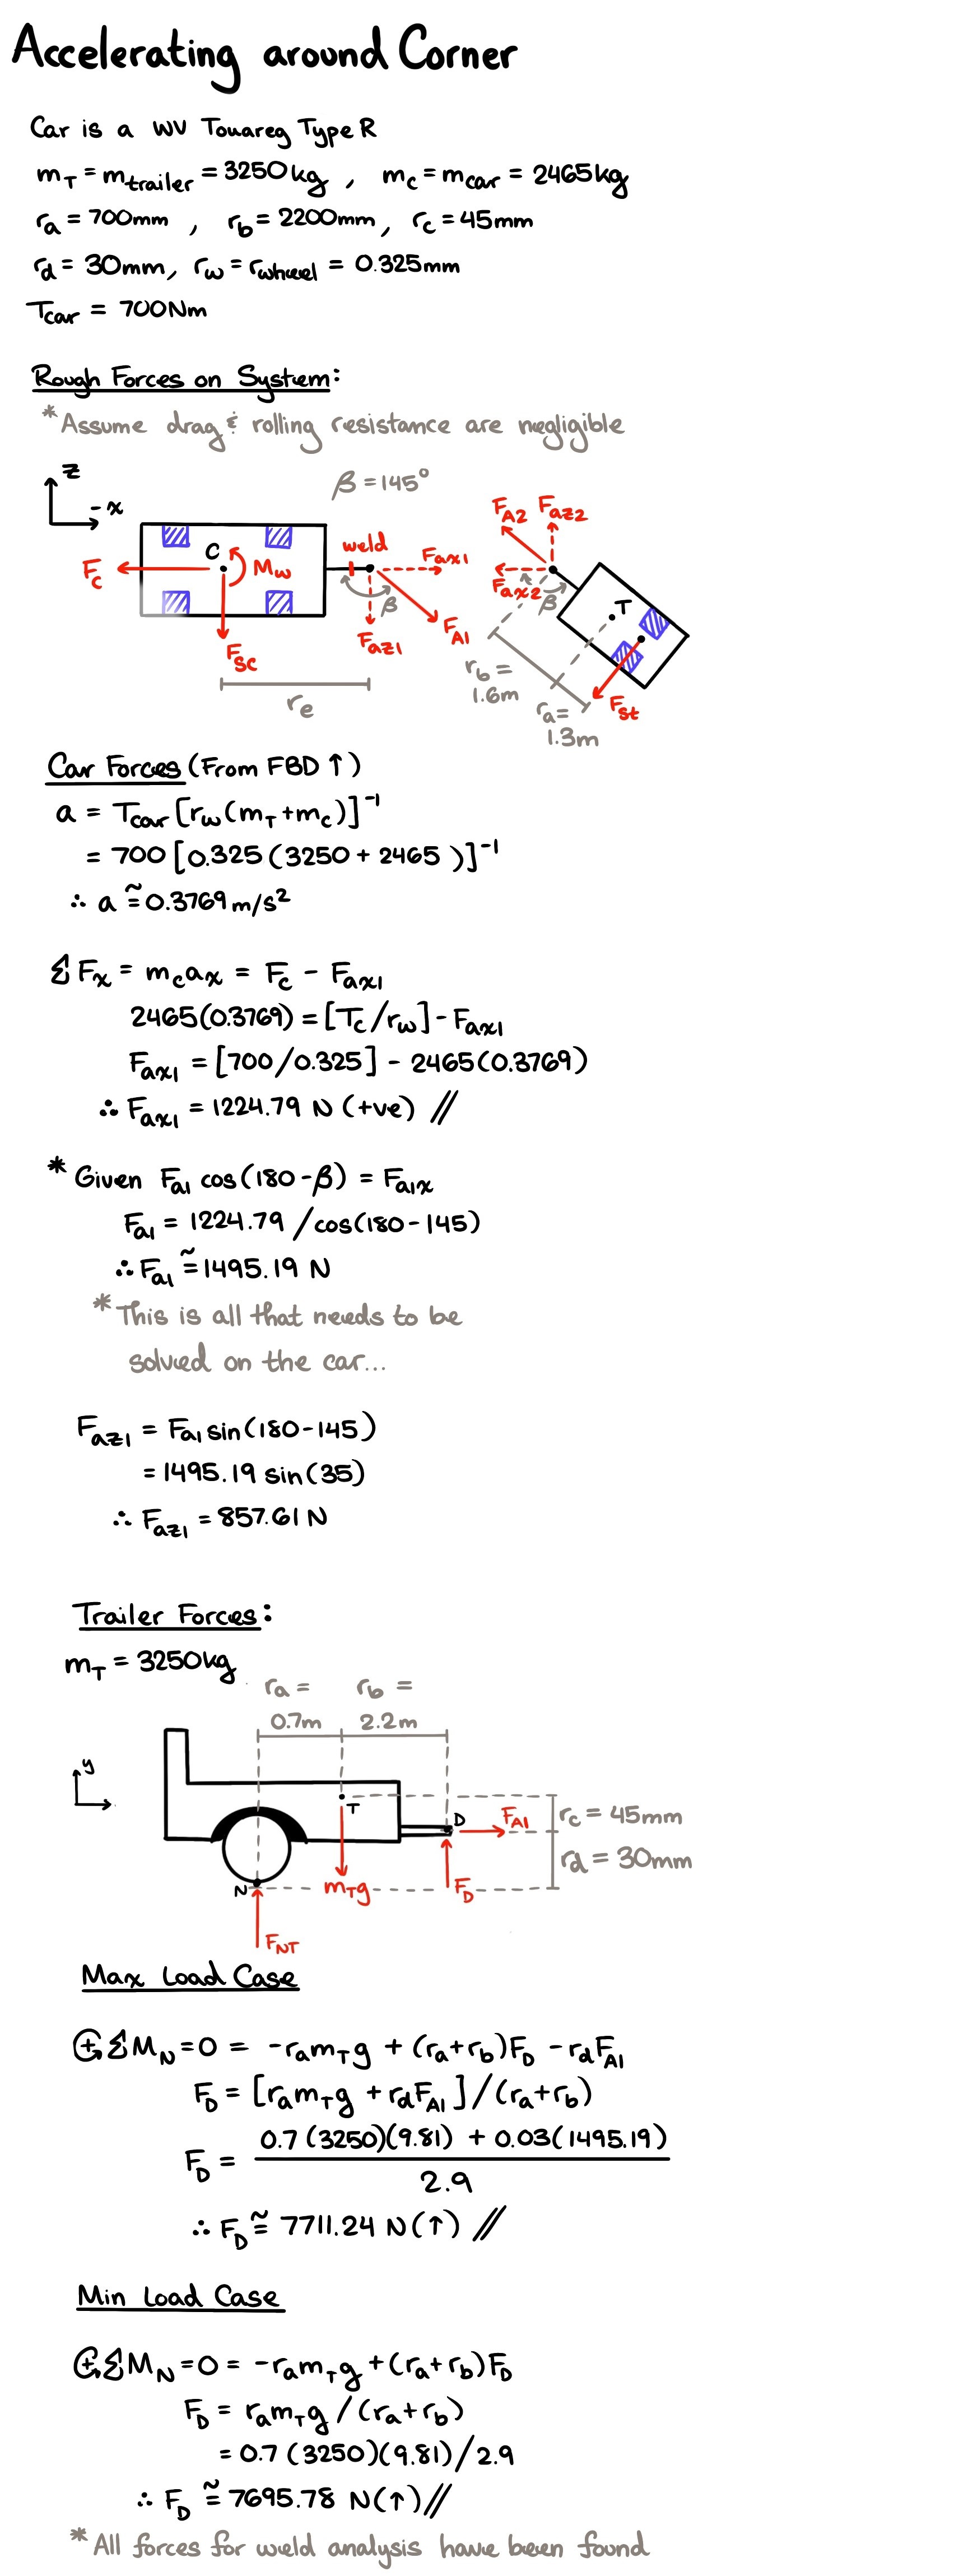 Accelerating around Corner
Car is a WV Touareg Type R
m_T = m_trailer = 3250kg , m_c = m_car = 2465kg
r_a = 700mm , r_b = 2200mm, r_c = 45mm
r_d = 30mm, r_w = r_wheel = 0.325mm
T_car = 700Nm
Rough Forces on System:
*Assume drag & rolling resistance are negligible
z
-x
β = 145°
C
F_c
M_w
F_sc
weld
F_ax1
β
F_A1
F_az1
r_e
F_A2 F_az2
F_ax2
β
T
r_b =
1.6m
r_a =
1.3m
F_st
Car Forces (From FBD ↑)
a = T_car [r_w (m_T + m_c)]^-1
= 700 [0.325 (3250 + 2465 )]^-1
∴ a ≅ 0.3769 m/s²
ΣF_x = m_c a_x = F_c - F_ax1
2465(0.3769) = [T_c/r_w] - F_ax1
F_ax1 = [700/0.325] - 2465(0.3769)
∴ F_ax1 = 1224.79 N (+ve) //
* Given F_a1 cos(180-β) = F_a1x
F_a1 = 1224.79 /cos(180-145)
∴ F_a1 ≅ 1495.19 N
*This is all that needs to be
solved on the car...
F_az1 = F_a1 sin(180-145)
= 1495.19 sin(35)
∴ F_az1 = 857.61 N
Trailer Forces:
m_T = 3250kg
r_a = r_b =
0.7m 2.2m
y
T
D
F_A1
r_c = 45mm
r_d = 30mm
N
m_T g
F_D
F_NT
Max Load Case
+ ΣM_N = 0 = -r_a m_T g + (r_a + r_b)F_D - r_d F_A1
F_D = [r_a m_T g + r_d F_A1]/(r_a + r_b)
F_D = 0.7 (3250)(9.81) + 0.03(1495.19)
2.9
∴ F_D ≅ 7711.24 N(↑) //
Min Load Case
+ ΣM_N = 0 = -r_a m_T g + (r_a + r_b)F_D
F_D = r_a m_T g /(r_a + r_b)
= 0.7 (3250)(9.81)/2.9
∴ F_D ≅ 7695.78 N(↑)//
*All forces for weld analysis have been found